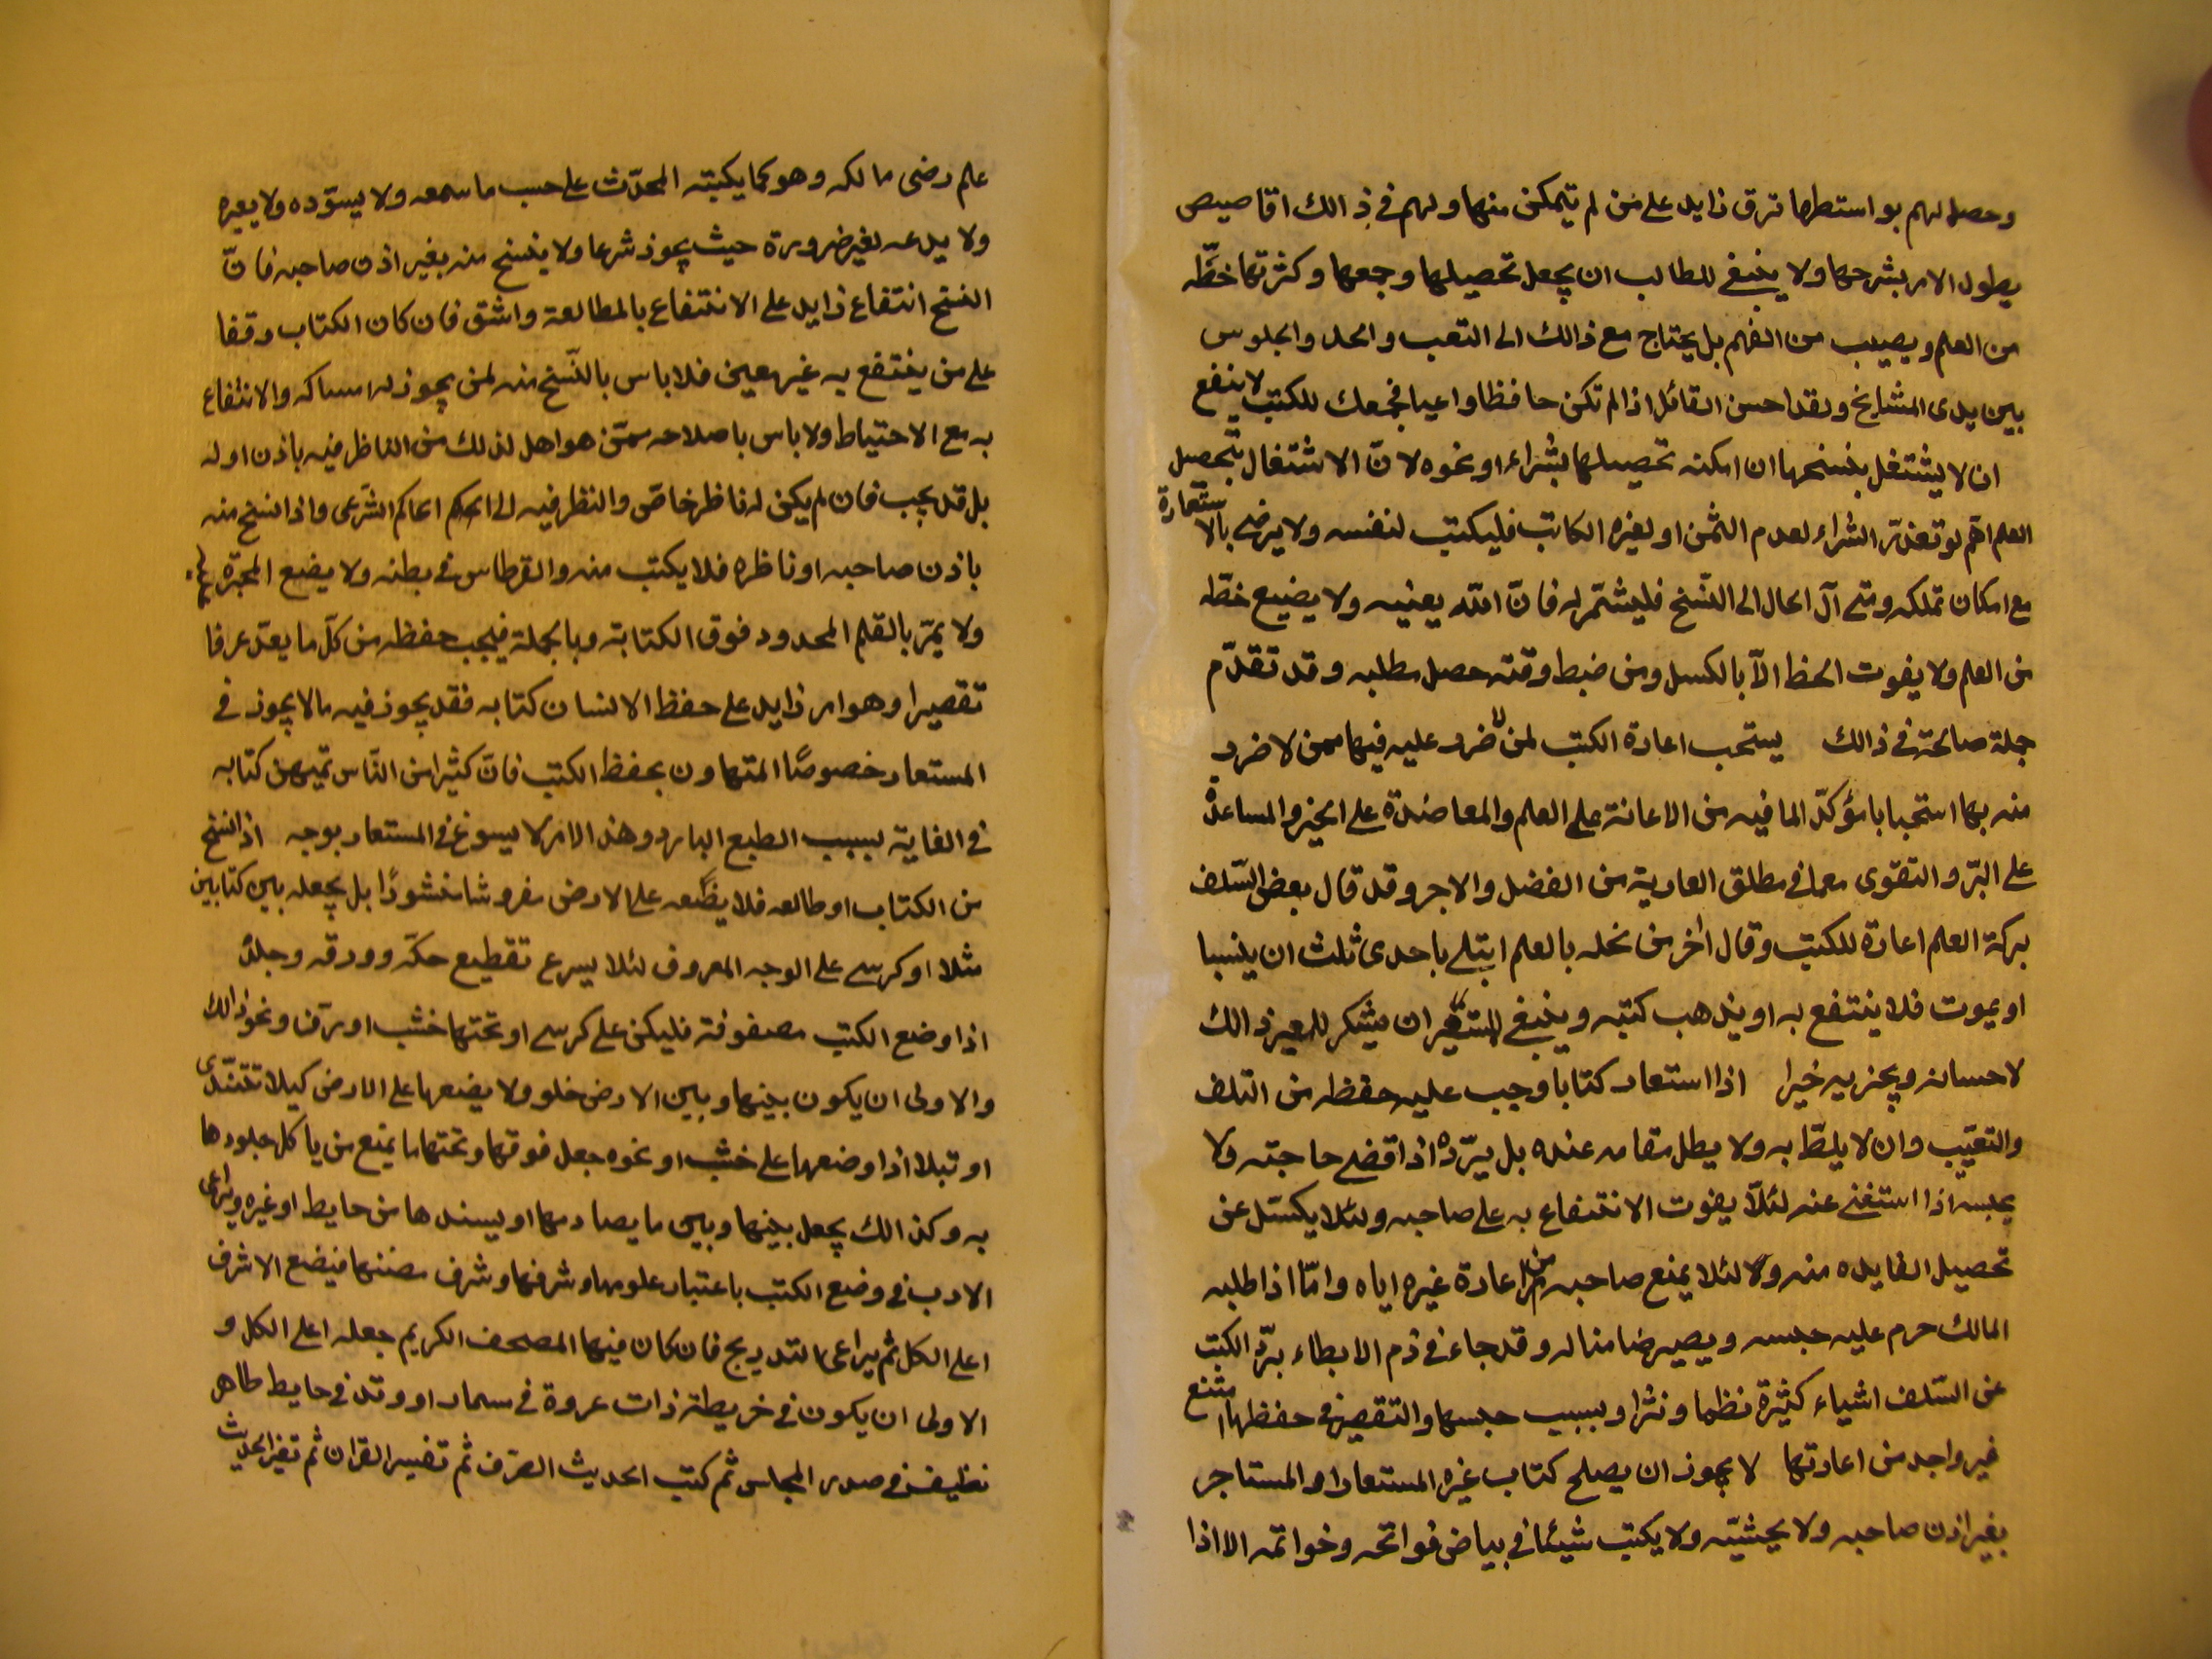 وحصل لهم بواسطتها ترق زايد على من لم يتمكن منها ولهم في ذالك اقاصيص
يطول الامر بشرحها ولا ينبغي للطالب ان يجعل تحصيلها وجمعها وكثرتها خطّه
من العلم ويصيب من الفهم بل يحتاج مع ذالك الى التعب والجد والجلوس
بين يدى المشايخ ولقد احسن القائل اذا لم تكن حافظا واعيا فجمعك للكتب لا ينفع
ان لا يشتغل بنسخها ان امكنه تحصيلها بشراء او نحوه لانّ الاشتغال بتحصيل
العلم اهّم لو تعذّر الشراء لعدم الثمن او لغيره الكاتب فليكتب لنفسه ولا يرضى بالاستعارة
مع امكان تملكه ومتى آل الحال الى النّسخ فليشتّمر له فانّ الله يعنيه ولا يضيع خطّه
من العلم ولا يفوت الحظ الّا بالكسل ومن ضبط وقته حصل مطلبه وقد تقدّم
جملة صالحة في ذالك يستحب اعادة الكتب لمن لا ضرر عليه فيها ممن لا ضرر
منه بها استحبابا مؤكدّا لما فيه من الاعانة على العلم والمعاضدة على الخير والمساعدة
على البرّ والتقوى مع ما في مطلق العارية من الفضل والاجر وقد قال بعض السّلف
بركة العلم اعادة للكتب وقال اخر من نحله بالعلم ابتلى باحدى ثلث ان ينسبا
او يموت فلا ينتفع به او يذهب كتبه وينبغي للمستعير ان يشكر للمعير ذالك
لاحسانه ويجزيه خيرا اذا استعار كتابا وجب عليه حفظه من التلف
والتعيّب وان لا يلطّ به ولا يطل مقامه عنده بل يرّده اذا قضى حاجته ولا
يحبسه اذا استغنى عنه لئلّا يفوت الانتفاع به على صاحبه ولئلا يكسّل عن
تحصيل الفايده منه ولا لئلا يمنع صاحبه من اعادة غيره اياه وامّا اذا طلبه
المالك حرم عليه حبسه ويصير ضامنا له وقد جاء في ذم الابطاء بردّ الكتب
عن السّلف اشياء كثيرة نظما ونثرا وبسبب حبسها والتقصير في حفظها امتنع
غير واحد من اعادتها لا يجوز ان يصلح كتاب غيره المستعار او المستاجر
بغير اذن صاحبه ولا يحشيّه ولا يكتب شيئا في بياض فواتحه وخواتمه الا اذا
علم رضى مالكه وهو كما يكتبه المحدّث على حسب ما سمعه ولا يسوّده ولا يعيره
ولا يدعه لغير ضرورة حيث يجوز شرعا ولا ينسخ منه بغير اذن صاحبه فانّ
النسخ انتفاع زايد على الانتفاع بالمطالعة واشق فان كان الكتاب وقفا
على من ينتفع به غير معين فلا باس بالنّسخ منه لمن يجوز له امساكه والانتفاع
به مع الاحتياط ولا باس باصلاحه ممّن هو اهل لذلك من الناظر فيه باذن اوله
بل قد يجب فان لم يكن له ناظر خاصّ والنظر فيه الى الحكم الحاكم الشّرعى واذا نسخ منه
باذن صاحبه او ناظره فلا يكتب منه والقرطاس في بطنه ولا يضع المحبّرة عليه
ولا يمرّ بالقلم المحدود فوق الكتابة وبالجملة فيجب حفظه من كلّ ما يعدّ عرفا
تقصيرا وهو امر زايد على حفظ الانسان كتابه فقد يجوز فيه مالا يجوز في
المستعار خصوصًا المتهاون بحفظ الكتب فانّ كثيرا من النّاس تميهن كتابه
في الغاية بسبب الطبع البارد وهذا الامر لا يسوغ في المستعار بوجه اذا نسخ
من الكتاب او طالعه فلا يضّعه على الارض مفروشا منشورًا بل يجعله بين كتابين
مثلا او كرسي على الوجه المعروف لئلا يسرع تقطيع حكّه وورقه وجلدّ
اذا وضع الكتب مصفوفة فليكن على كرسي او تحتها خشب او رّف ونحو ذالك
والاولى ان يكون بينها وبين الارض خلو ولا يضعها على الارض كيلا تتندّى
او تبلا اذا وضعها على خشب او نحوه جعل فوقها وتحتها ما يمنع من ياكل جلودها
به وكذالك يجعل بينها وبين ما يصادمها او يسندها من حايط او غيره ويراعى
الادب في وضع الكتب باعتبار علومها وشرفها وشرف مصنفها فيضع الاشرف
اعلى الكل ثم يراعى التدريج فان كان فيها المصحف الكريم جعله اعلى الكل و
الاولى ان يكون في خريطة ذات عروة في سمار او وتد في حايط طاهر
نظيف في صدر المجلس ثم كتب الحديث الصّرف ثم تفسير القران ثم تفسير الحديث